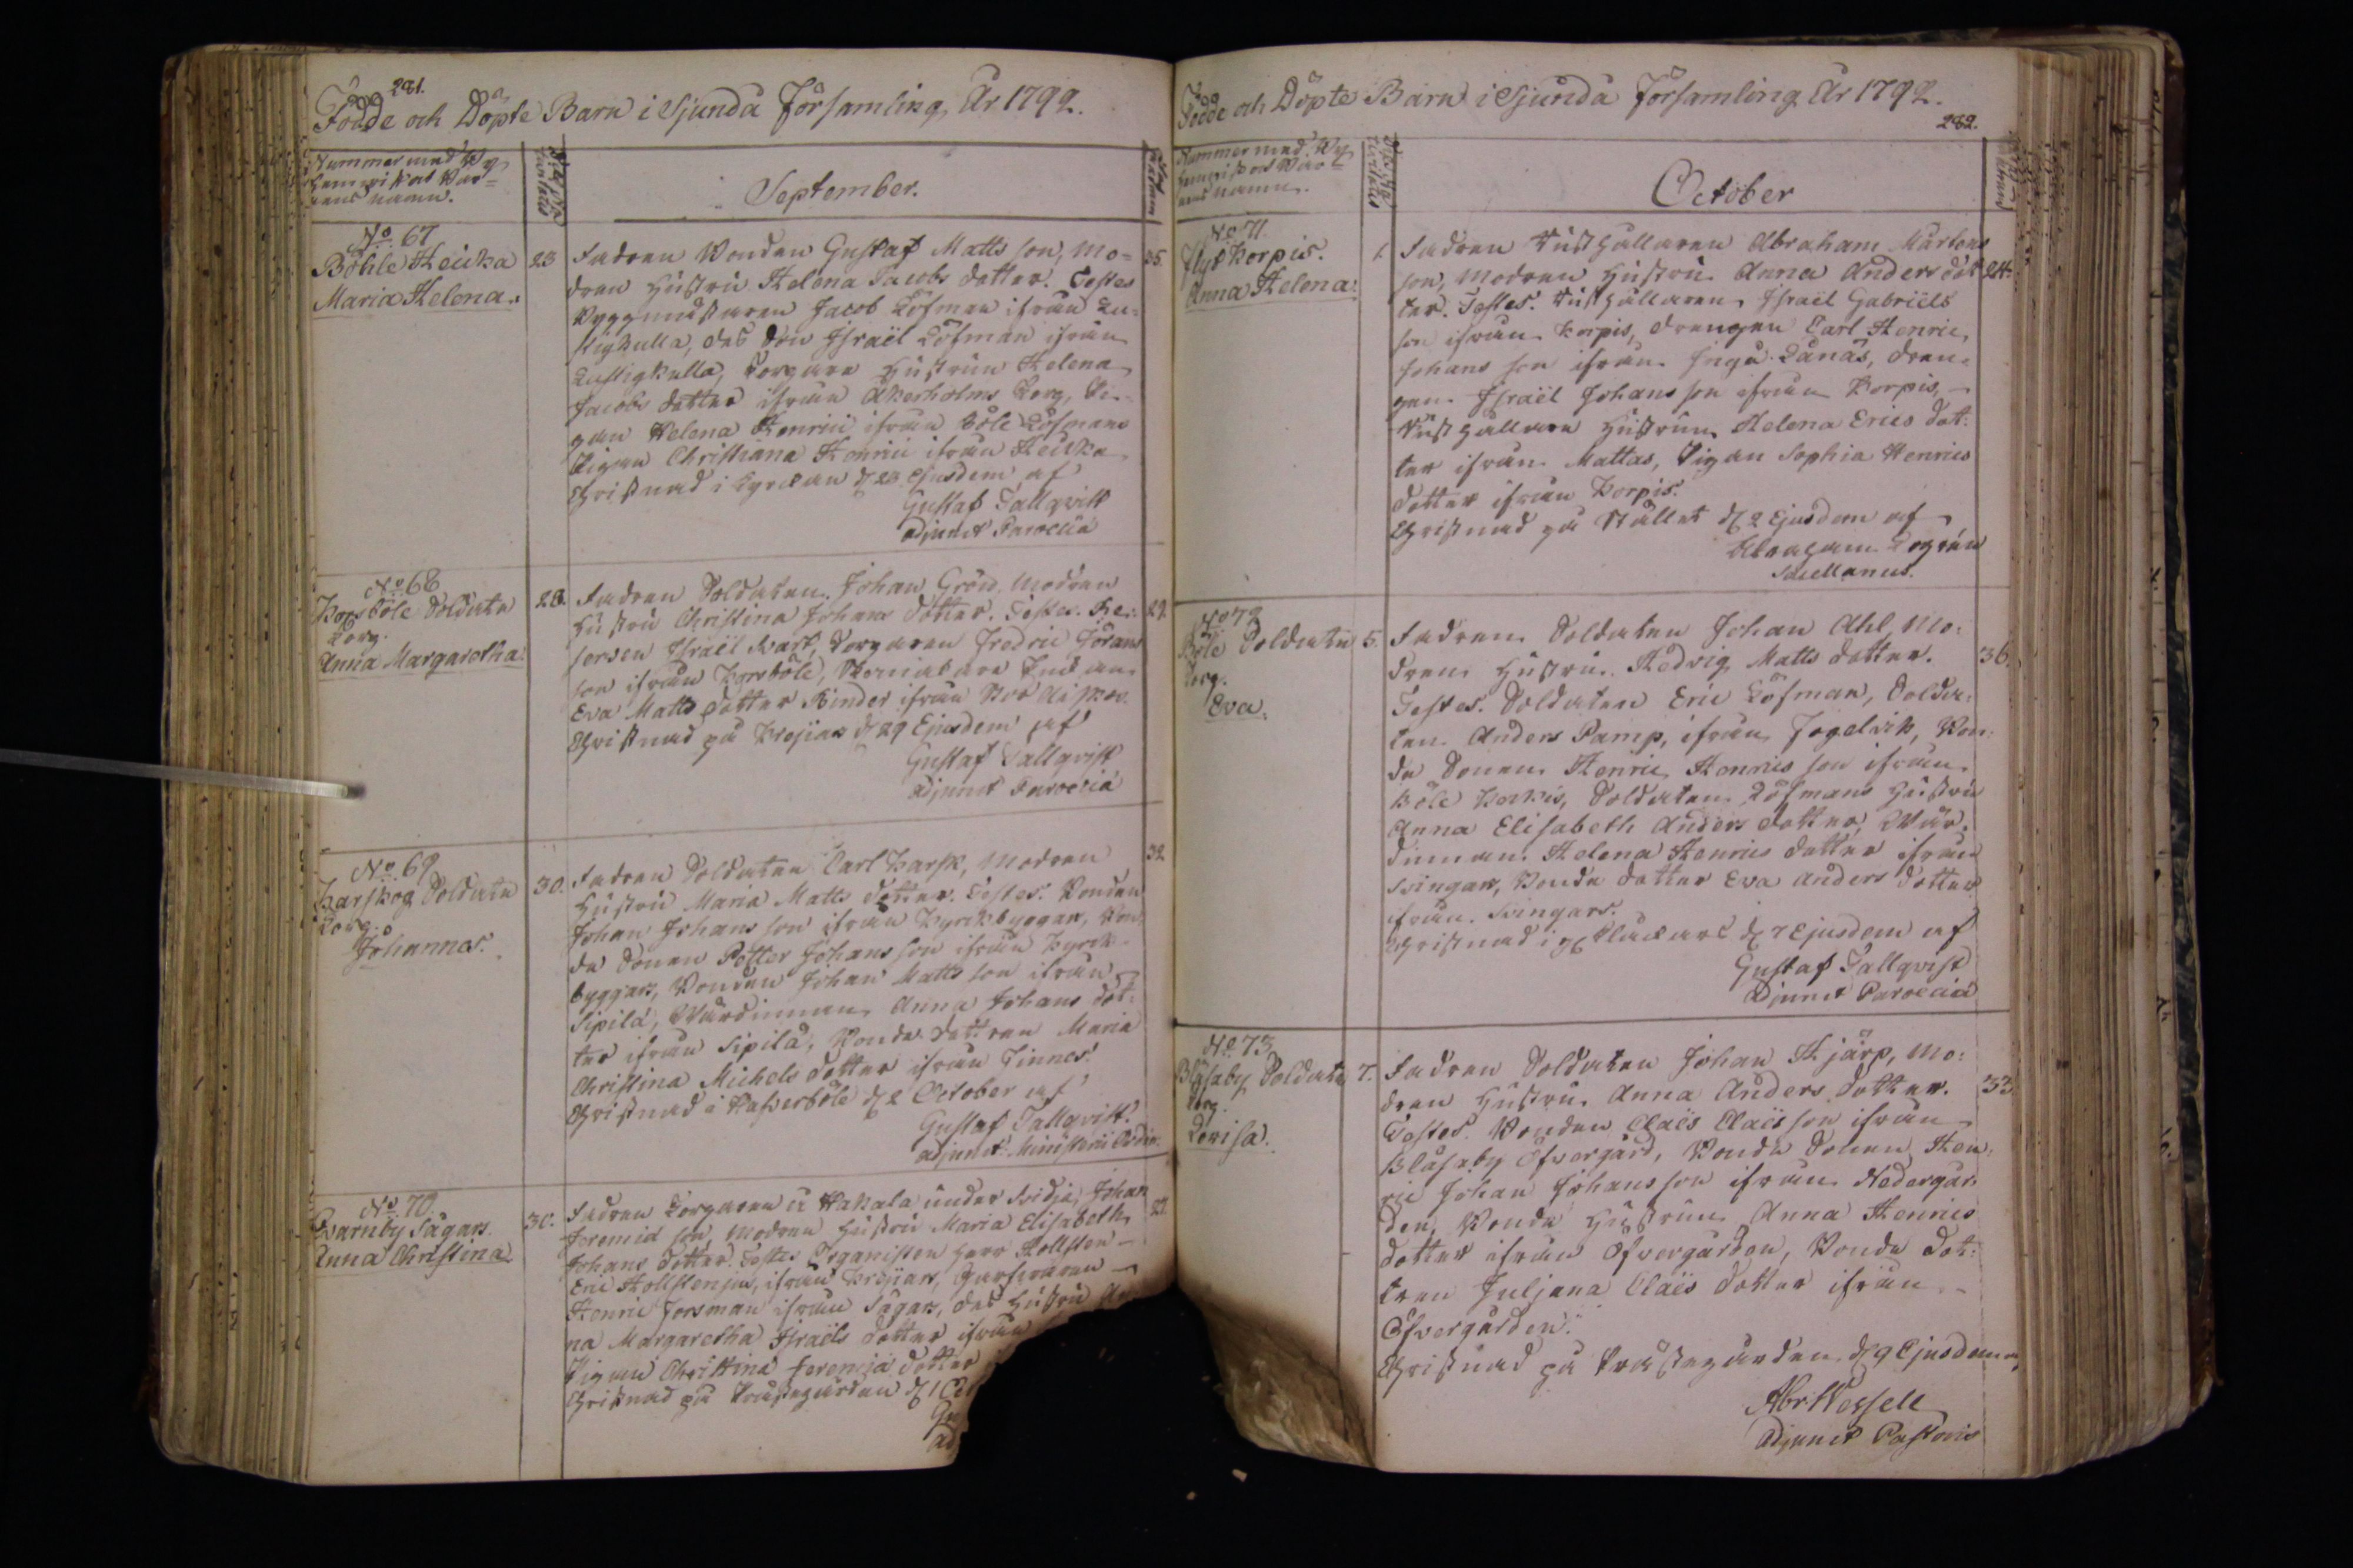 281.
Födde och Döpte Barn i Sjundå Församling År 1792.
Nummer med By
hemvist och Bar=
nens namn.
September.
No. 67
Böhle Heicka
Maria Helena.
23
Fadren Bonden Gustaf Matts son, Mo=
dren Hustru Helena Jacobs dotter. Testes
Byggmästaren Jacob Löfman ifrån Lu=
stigkulla, des Son Israël Löfman ifrån
Lustigkulla, Torpare Hustrun Helena
Jacobs dotter ifrån Åkerholms Torp, Pi=
gan Helena Henrici ifrån Böle Löfmans
Pigan Christiana Henrici ifrån Heicka
Christnad i Kyrckan d 23 Ejusdem af
Gustaf Tallqvist
adjunct Paroecia
25.
No. 68
Korsböle Soldate
Torp.
Anna Margaretha.
28.
Fadren Soldaten Johan Grön, Modren
Hustru Christina Johans dotter. Testes.
Israël Svart, Torparen Fredric Görans
son ifrån Korsböle,
Eva Matts dotter Rinder ifrån
Christnad på Krejars d 29 Ejusdem af
Gustaf Tallqvist
Adjunct Paroecia
29.
No. 69
Harskog Soldate
Torp.
Johannes.
30.
Fadren Soldaten Carl Harsk, Modren
Hustru Maria Matts dotter. Testes. Bonden
Johan Johans son ifrån Kyrckbyggars, Bon=
de Sonen Petter Johans son ifrån Kyrck=
byggars, Bonden Johan Matts son ifrån
Sipilä, Wärdinnan Anna Johans dot=
ter ifrån Sipilä, Bonde dottren Maria
Christina Michels dotter ifrån Finnes.
Christnad i Hafverböle d 2 October af
Gustaf Tallqvist.
adjunct. Ministerii Ordin.
32
No. 70.
Qvarnby Sågars.
Anna Christina.
30.
Fadren Torparen å Hakala under Svidja, Johan
Jeremia son, Modren Hustru Maria Elisabeth
Johans dotter. Testes Organisten Herr Hollsten
Eric Hollsten jun, ifrån Krejars,
Henric Forsman ifrån Sågars, des Hustru An
na Margaretha Israëls dotter ifrån
Pigan Christina Jeremiä dotter
Christnad på Prästegården d 1 Oct
Gu
ad
Födde och Döpte Barn i Sjundå Församling År 1792.
282.
Nummer med By
hemvist och Bar=
nens namn.
October
No. 71
Flyt Korpis.
Anna Helena.
1.
Fadren Rusthållaren Abraham Mårtens
son, Modren Hustru Anna Anders dot=
ter. Testes. Rusthållaren Israël Gabriëls
son ifrån Korpis, drengen Carl Henric
Johans son ifrån Ingå Långs, dren=
gen Israël Johans son ifrån Korpis,
Rusthållare Hustrun Helena Erics dot=
ter ifrån Mattas, Pigan Sophia Henrics
dotter ifrån Korpis.
Christnad på Stället d 2 Ejusdem af
Abraham Logrén
Sacellanus.
24.
No 72
Böle Soldate
Torp.
Eva.
5.
Fadren Soldaten Johan Ahl, Mo=
dren Hustru Hedvig Matts dotter.
Testes. Soldaten Eric Löfman, Solda=
ten Anders Pamp, ifrån Fogelvik, Bon=
de Sonen Henric Henrics son ifrån
Böle Kockis, Soldaten Löfmans Hustru
Anna Elisabeth Anders dotter, Wär=
dinnan Helena Henrics dotter ifrån
Svingars, Bonde dotter Eva Anders dotter
ifrån Svingars.
Christnad i d 7 Ejusdem af
Gustaf Tallqvist
Adjunct Paroecia
36.
No. 73
Blåsaby Soldate
Torp.
Lovisa.
7.
Fadren Soldaten Johan Hjärp, Mo=
dren Hustru Anna Anders dotter.
Testes. Bonden Claës Claës son ifrån
Blåsaby Öfvergård, Bonde Sonen Hen=
ric Johan Johans son ifrån Nedergår=
den, Bonde Hustrun Anna Henrics
dotter ifrån Öfvergården, Bonde dot=
tren Juljana Claës dotter ifrån
Öfvergården.
Christnad på Prästegården d 9 Ejusdem
Abr Wessell
Adjunct Pastoris
33.